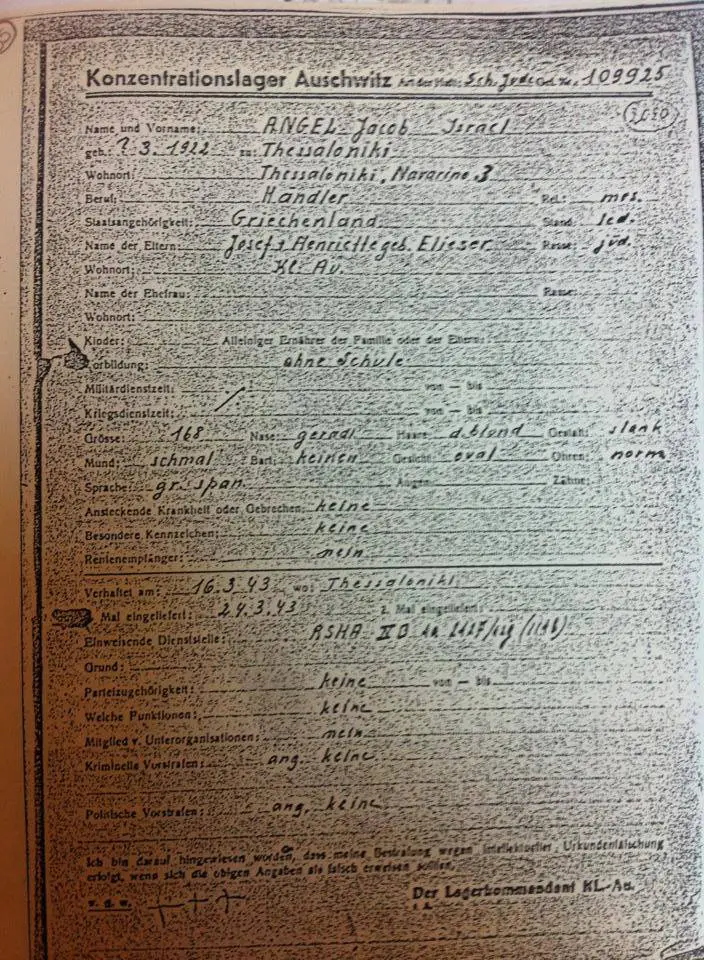 Konzentrationslager Auschwitz Art der Haft: Sch. Jude Gef. Nr. 109925
Name und Vorname: ANGEL Jacob Israel
geb.: ? 3. 1922 zu: Thessaloniki
Wohnort: Thessaloniki, Navarino 3
Beruf: Händler Rel.: mos.
Staatsangehörigkeit: Griechenland Stand: led.
Name der Eltern: Josef u. Henriette geb. Elieser Rasse: jüd.
Wohnort: Kl. Au.
Name der Ehefrau: Rasse:
Wohnort:
Kinder: Alleiniger Ernährer der Familie oder der Eltern:
Vorbildung: ohne Schule
Militärdienstzeit: von — bis
Kriegsdienstzeit: von — bis
Grösse: 168 Nase: gerade Haare: d. blond Gestalt: slank
Mund: schmal Bart: keinen Gesicht: oval Ohren: norm
Sprache: gr. span. Augen: Zähne:
Ansteckende Krankheit oder Gebrechen: keine
Besondere Kennzeichen: keine
Rentenempfänger: nein
Verhaftet am: 16.3.43 wo: Thessaloniki
Mal eingeliefert: 24.3.43 2. Mal eingeliefert:
Einweisende Dienststelle: RSHA IV B
Grund:
Parteizugehörigkeit: keine von — bis
Welche Funktionen: keine
Mitglied v. Unterorganisationen: nein
Kriminelle Vorstrafen: ang. keine
Politische Vorstrafen: ang. keine
Ich bin darauf hingewiesen worden, dass meine Bestrafung wegen intellektueller Urkundenfälschung
erfolgt, wenn sich die obigen Angaben als falsch erweisen sollten.
v. g. u. +++ Der Lagerkommandant KL.-Au.